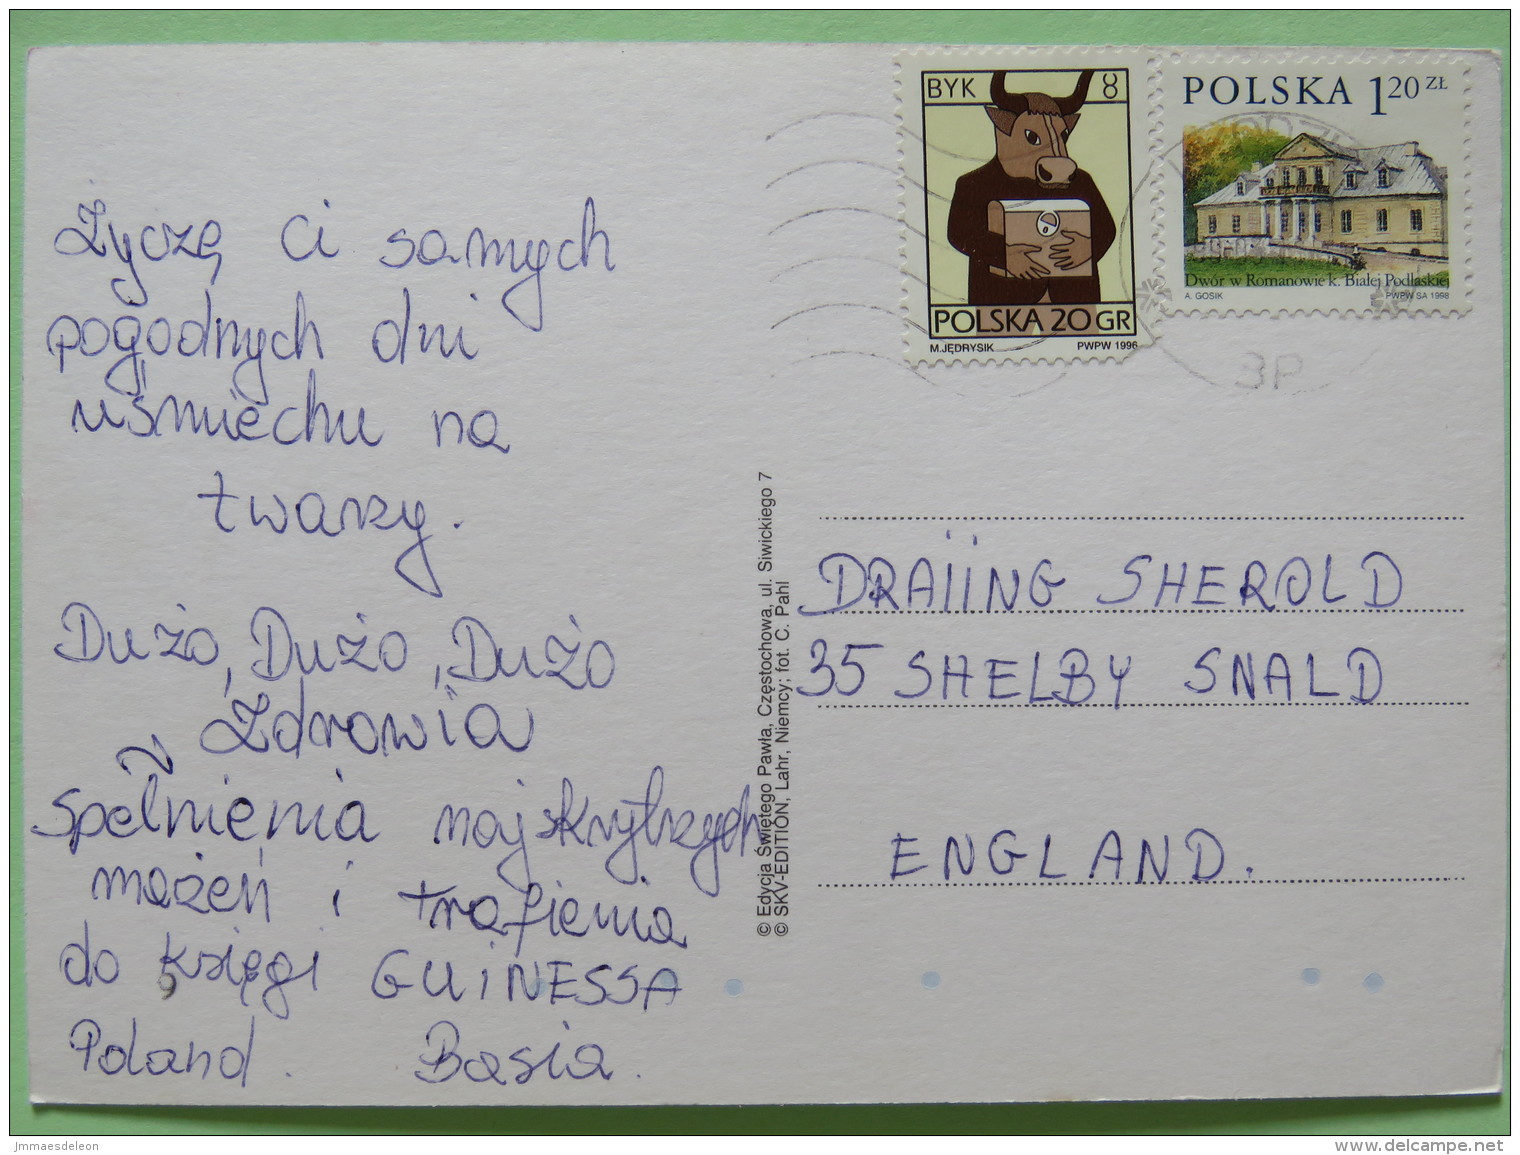 Życzę Ci samych
pogodnych dni
uśmiechu na
twarzy.
Dużo, Dużo, Dużo
Zdrowia
spełnienia najskrytrzych
mażeń i trafienia
do księgi GUINESSA
Poland. Basia.
© Edycja Świętego Pawła, Częstochowa, ul. Siwickiego 7
© SKV-EDITION, Lahr, Niemcy; fot. C. Pahl
BYK 8
POLSKA 20 GR
M.JĘDRYSIK PWPW 1996
POLSKA 1 20 ZŁ
Dwór w Romanowie k. Białej Podlaskiej
A. GOSIK PWPW SA 1998
3P
DRAIING SHEROLD
35 SHELBY SNALD
ENGLAND.
jmmaesdeleon
www.delcampe.net